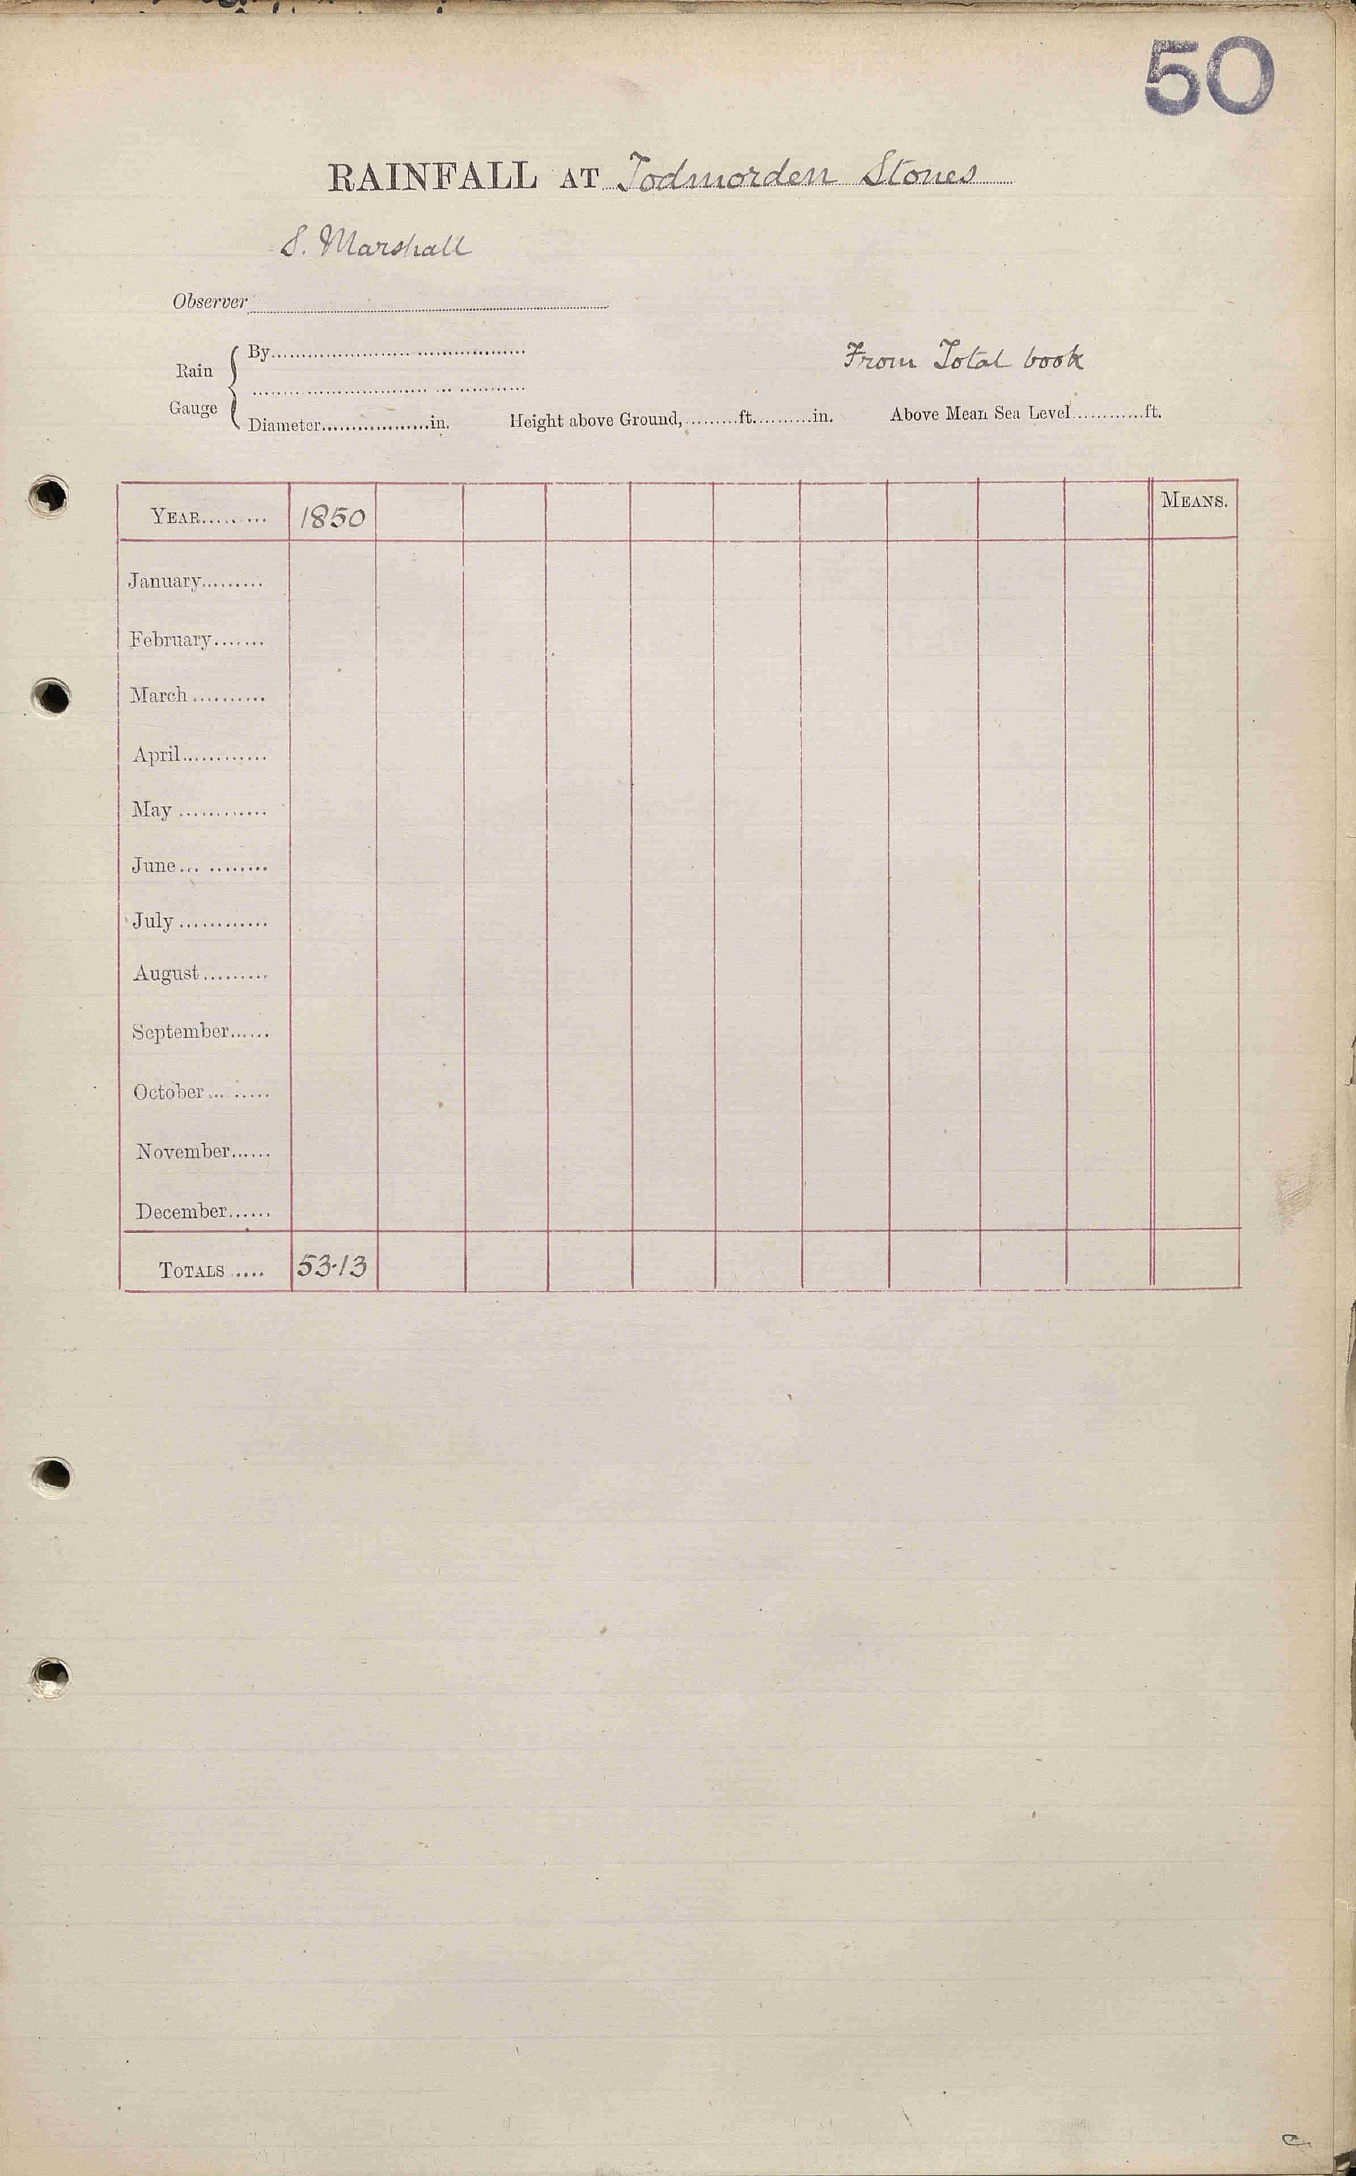 50
RAINFALL AT Todmorden Stones
S. Marshall
Observer
Rain Gauge
By
From Total book
Diameter in. Height above Ground, ft. in. Above Mean Sea Level ft.
YEAR 1850 MEANS.
January
February
March
April
May
June
July
August
September
October
November
December
TOTALS 53.13